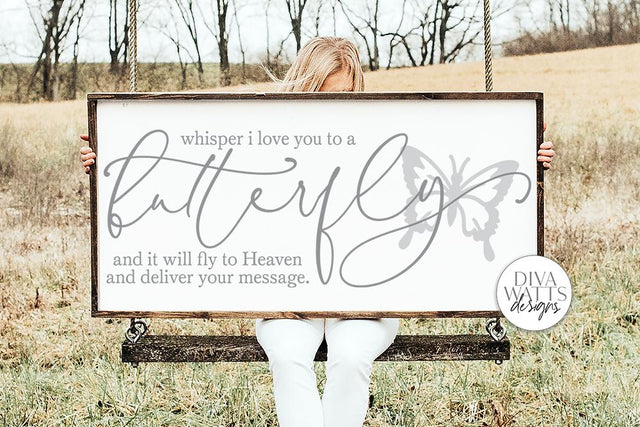 whisper i love you to a
butterfly
and it will fly to Heaven
and deliver your message.
DIVA
WATTS
designs